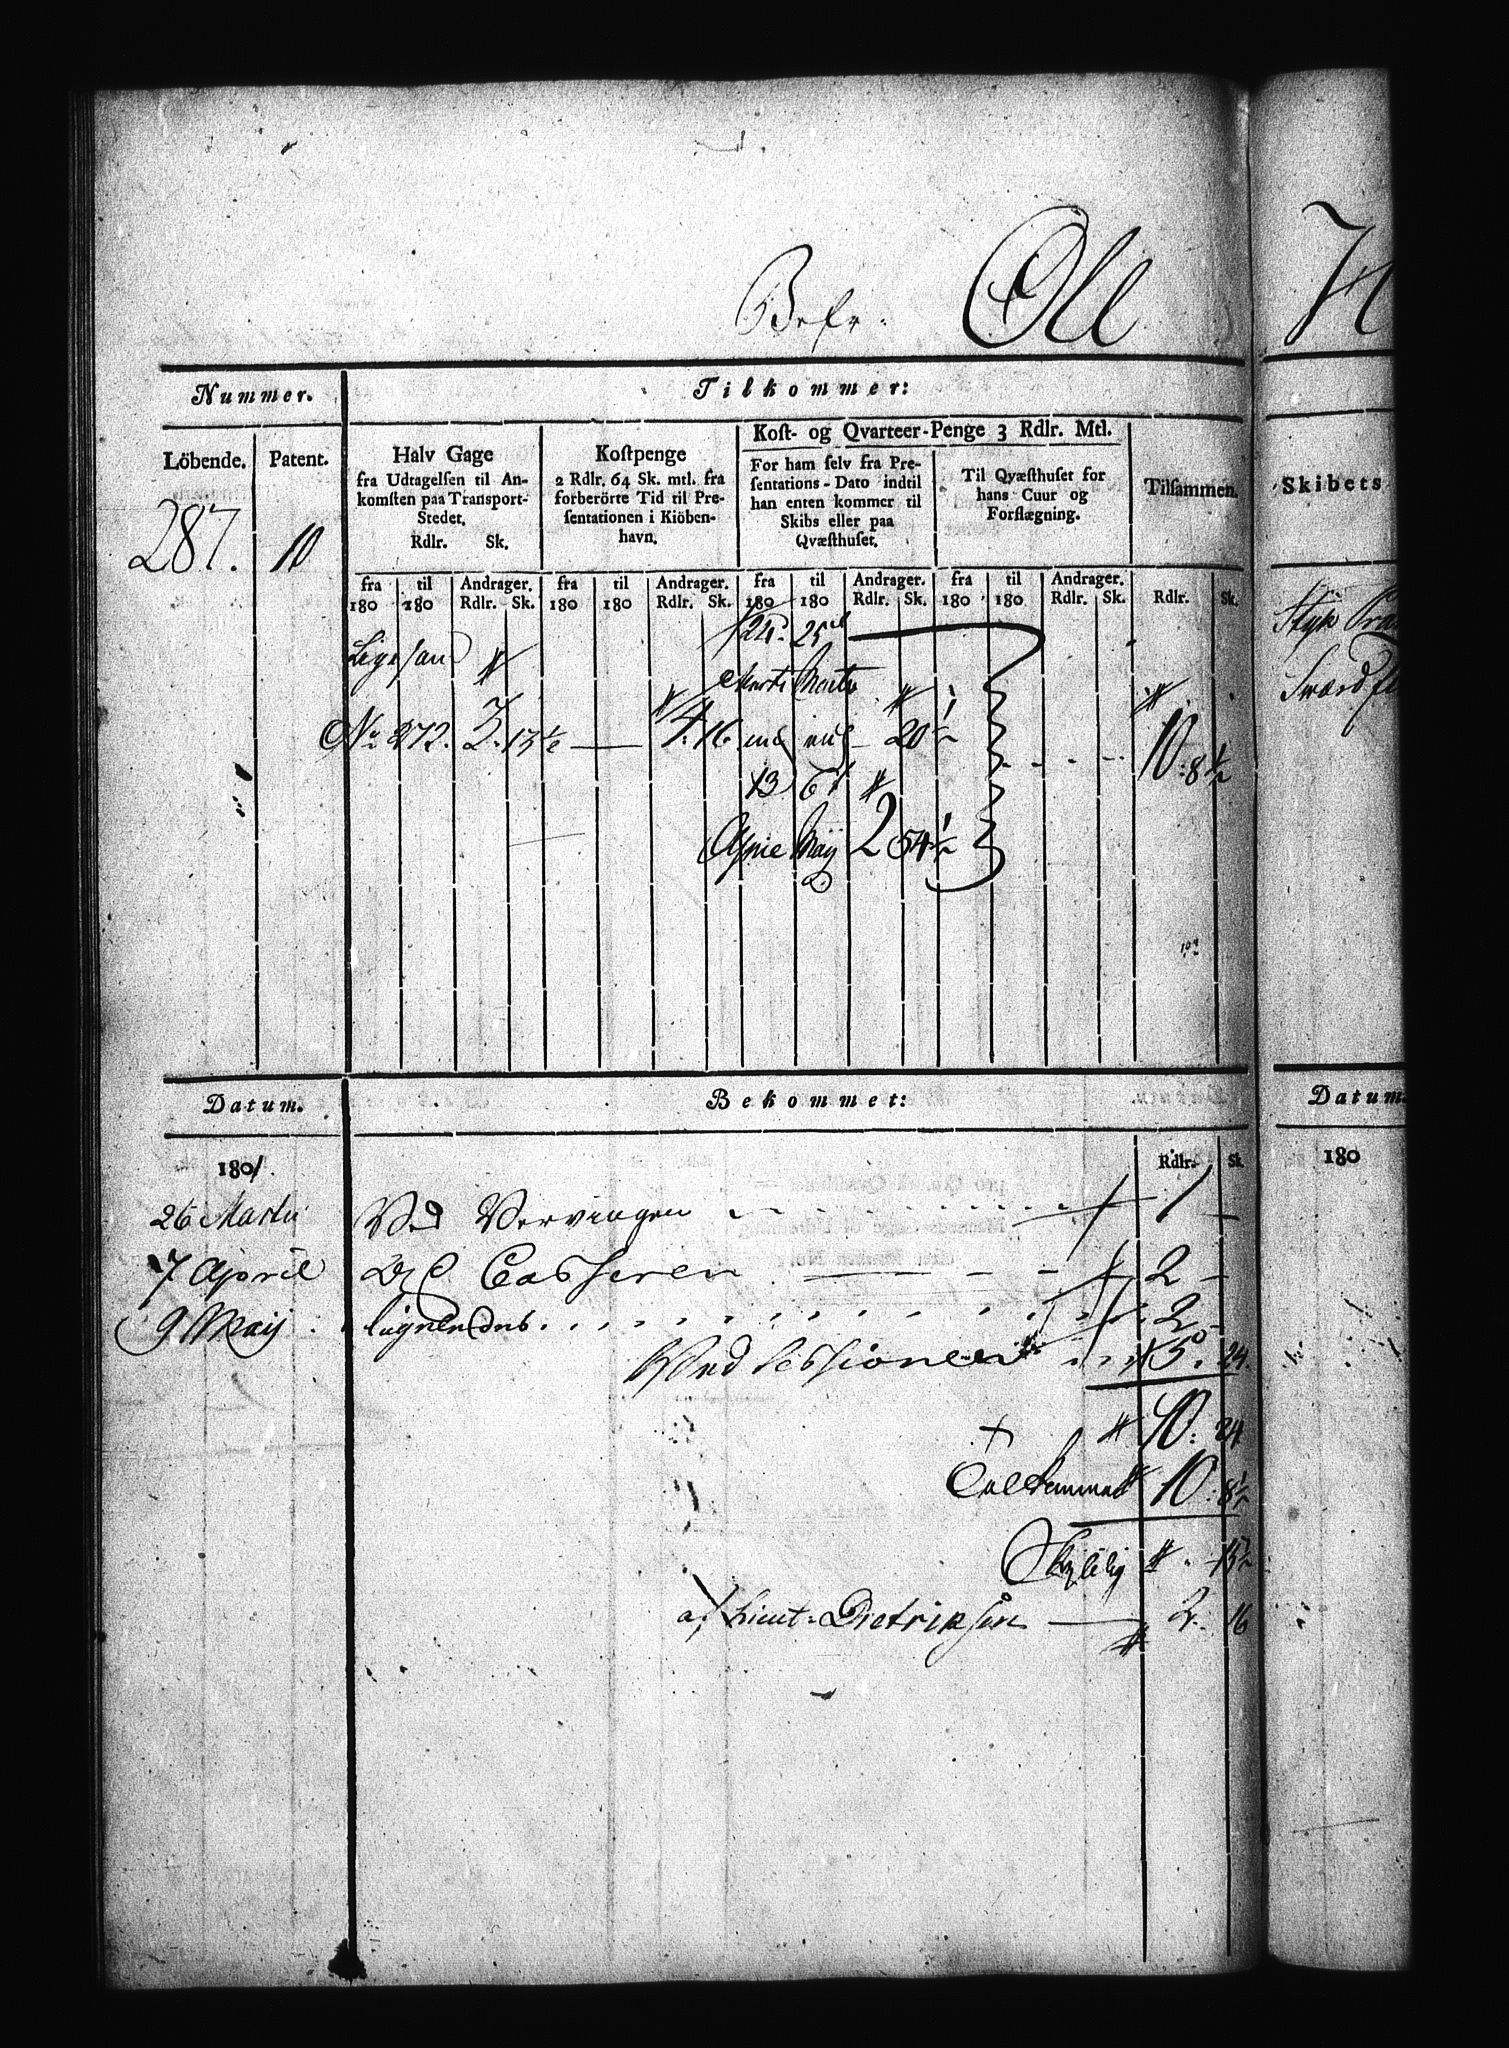 Befr. Ole H
Nummer.
Tilkommer:
Löbende.
Patent.
Halv Gage
fra Udtagelsen til An-
komsten paa Transport-
Stedet.
Rdlr. Sk.
Kostpenge
2 Rdlr. 64 Sk. mtl. fra
forberörte Tid til Pre-
sentationen i Kiöben-
havn.
Kost- og Qvarteer-Penge 3 Rdlr. Mtl.
For ham selv fra Pre-
sentations-Dato indtil
han enten kommer til
Skibs eller paa
Qvæsthuset.
Til Qvæsthuset for
hans Cuur og
Forflægning.
Tilsammen.
Skibets
287. 10
fra til Andrager. fra til Andrager. fra til Andrager. fra til Andrager.
180 180 Rdlr. Sk. 180 180 Rdlr. Sk. 180 180 Rdlr. Sk. 180 180 Rdlr. Sk. Rdlr. Sk.
24 25
Ligesaa
Marti Marti
No 272. 3. 13½ 4. 16 20½ 10: 8½
13 6
Aprie Maij 2 54½
Datum.
Bekommet:
Datum.
1801
Rdlr. Sk.
180
26 Marti Ved Vervingen 1 -
7 April Casseren 2 -
9 Maij lignendes 2 -
Ved Sessionen 5. 24.
10: 24
Tilkommet 10: 8½
Skyldig 15½
af Lieut. Dietriksen 2. 16